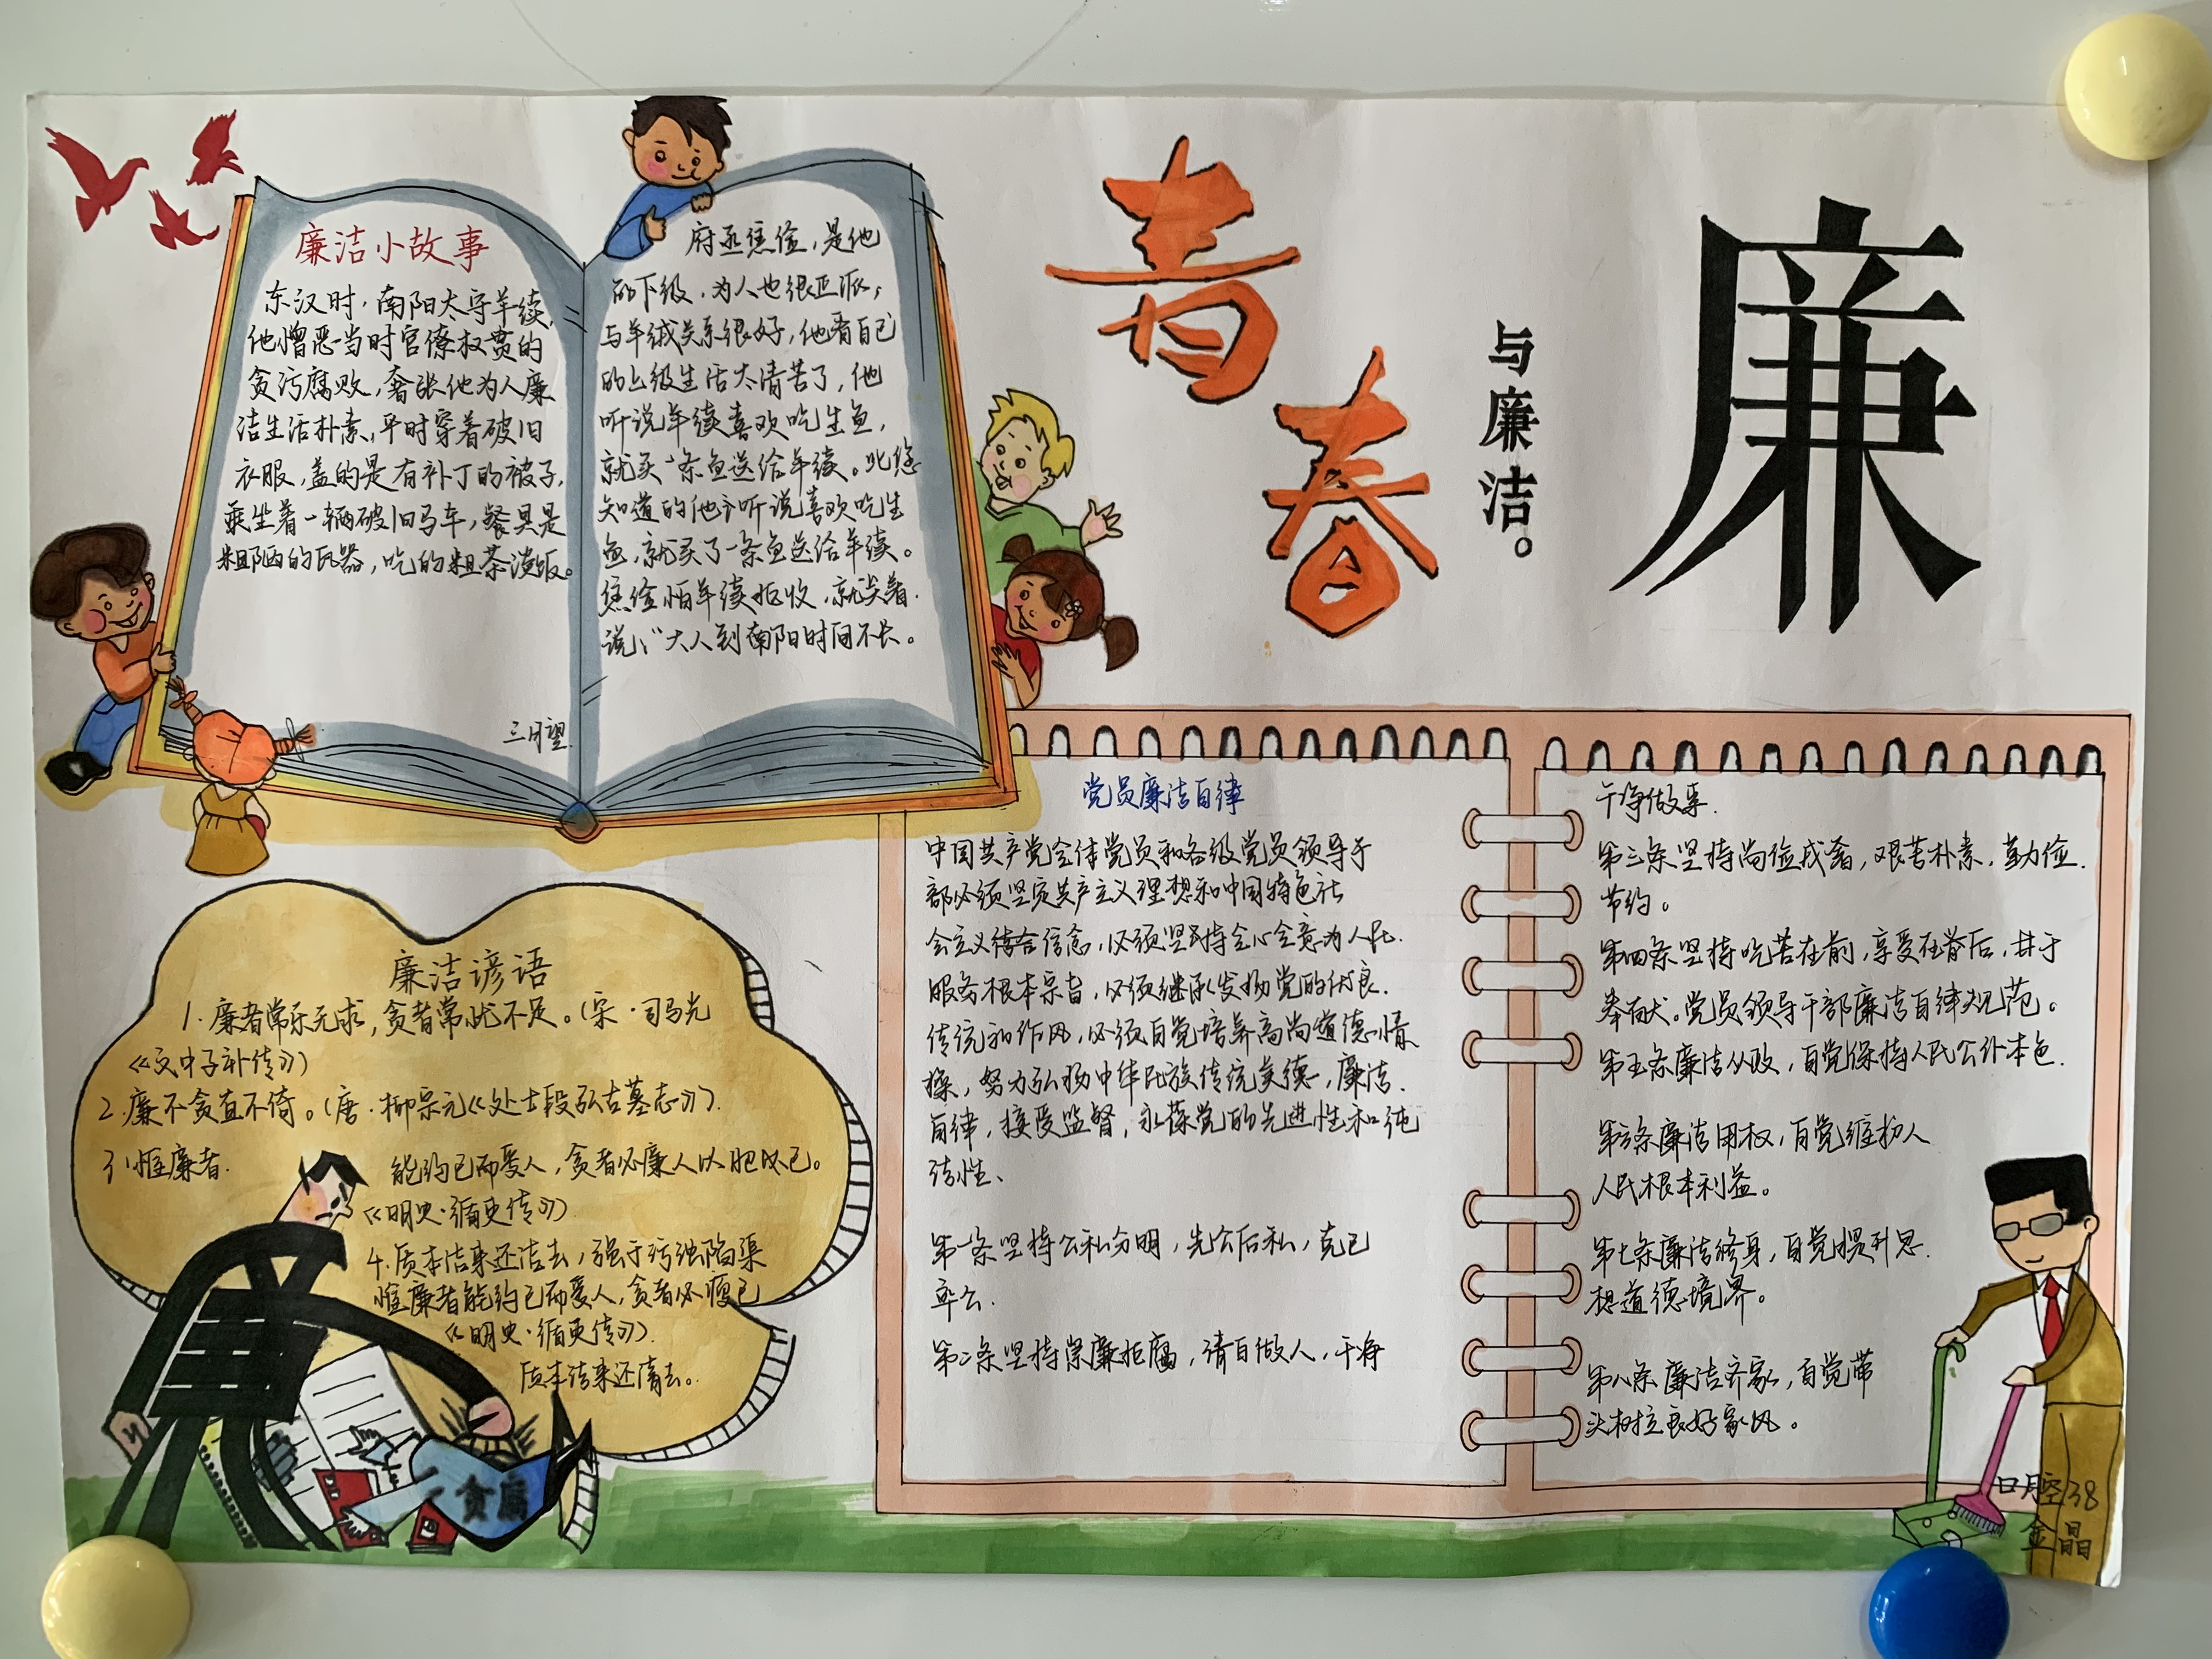 廉洁小故事
东汉时，南阳太守羊续，
他憎恶当时官僚权贵的
贪污腐败，奢张他为人廉
洁生活朴素，平时穿着破旧
衣服，盖的是有补丁的被子，
乘坐着一辆破旧马车，餐具是
粗陋的瓦器，吃的粗茶淡饭。
三月望
府丞焦俭，是他
的下级，为人也很正派，
与羊续关系很好，他看自己
的上级生活太清苦了，他
听说羊续喜欢吃生鱼，
就买一条鱼送给羊续。
知道的他 听说喜欢吃生
鱼，就买了一条鱼送给羊续。
焦俭怕羊续拒收，就笑着
说："大人到南阳时间不长。
青
春
与廉洁。
廉
廉洁谚语
1. 廉者常乐无求，贪者常忧不足。（宋·司马光
《文中子补传》）
2. 廉不贪直不倚。（唐·柳宗元《处士段弘古墓志》）.
3、惟廉者
能约己而爱人，贪者必廉人以肥己。
《明史·循吏传》）
4. 质本洁来还洁去，强于污浊陷渠
惟廉者能约己而爱人，贪者必瘦己
《明史·循吏传》）.
质本洁来还清去。
贪腐
党员廉洁自律
中国共产党全体党员和各级党员领导干
部必须坚定共产主义理想和中国特色社
会主义 信念，必须坚持全心全意为人民
服务根本宗旨，必须继承发扬党的优良
传统和作风，必须自觉培养高尚道德情
操，努力弘扬中华民族传统美德，廉洁
自律，接受监督，永葆党的先进性和纯
洁性、
第一条坚持公私分明，先公后私，克己
奉公.
第二条坚持崇廉拒腐，清白做人，干净
干净做事.
第三条坚持尚俭戒奢，艰苦朴素，勤俭
节约。
第四条坚持吃苦在前，享受在 后，甘于
奉献。党员领导干部廉洁自律规范。
第五条廉洁从政，自觉保持人民公仆本色.
第六条廉洁用权，自觉维护人
人民根本利益。
第七条廉洁修身，自觉提升思
想道德境界。
第八条廉洁齐家，自觉带
头树立良好家风。
口腔38
金晶